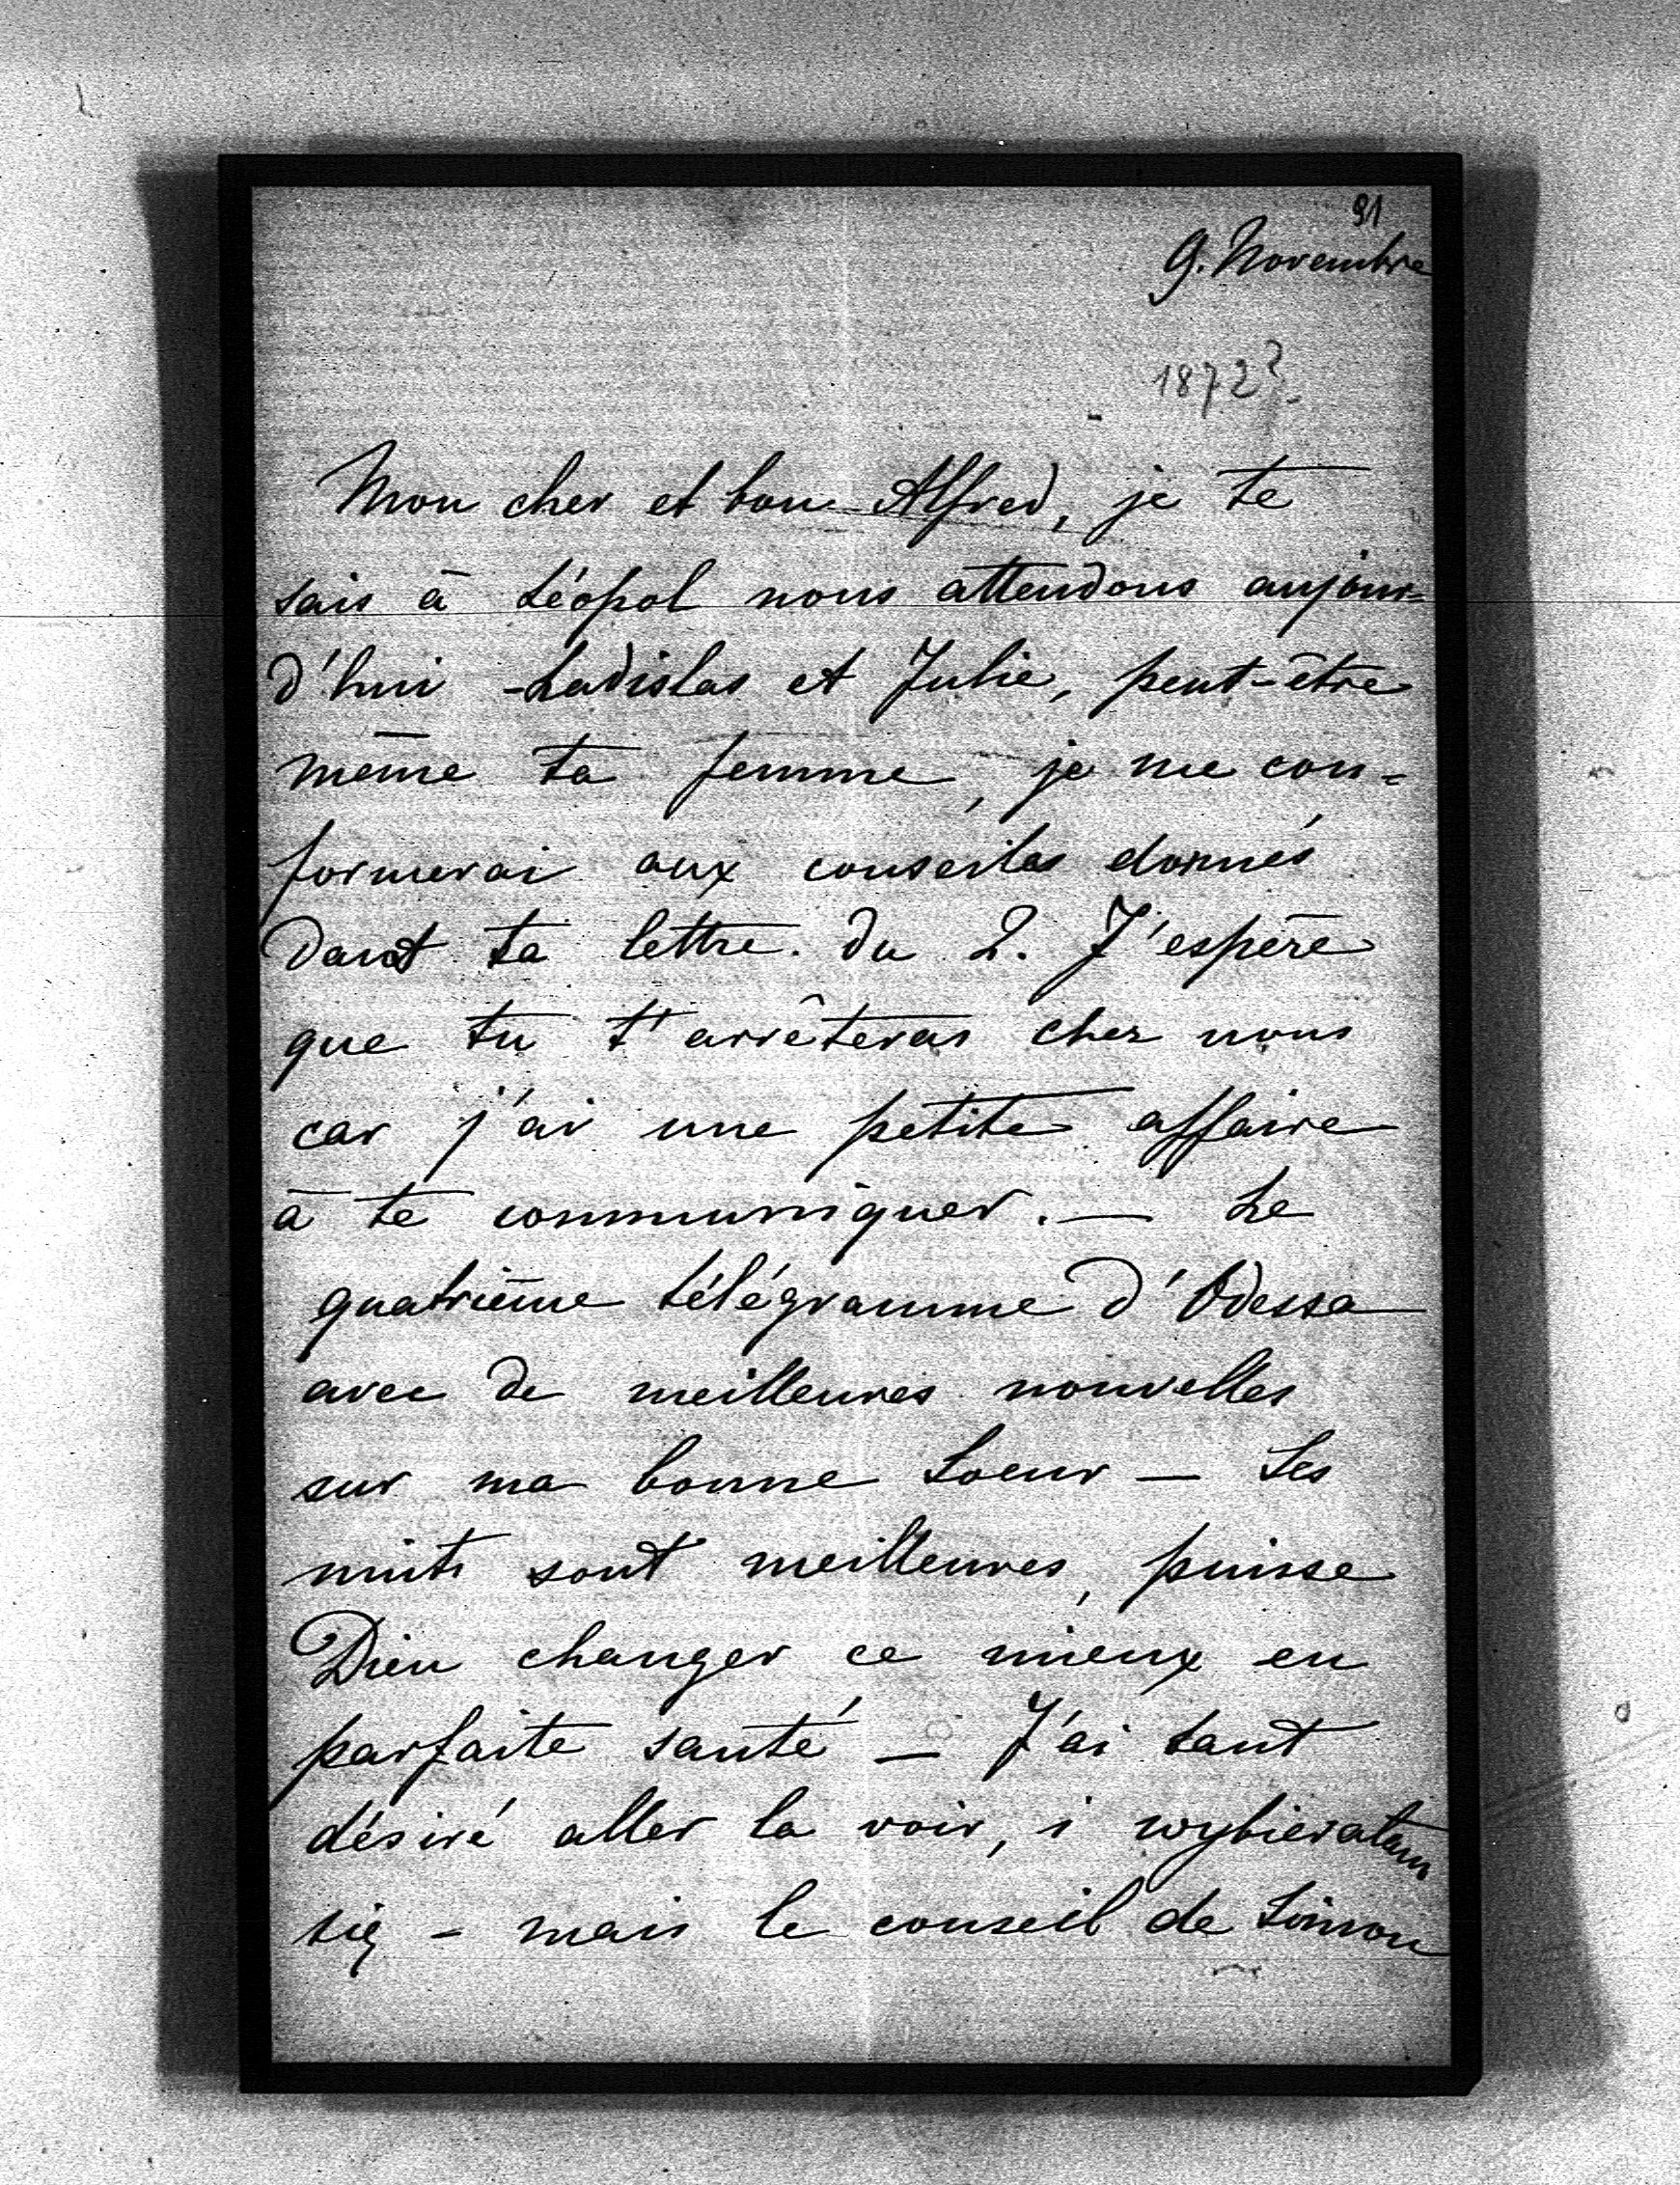 91
9. Novembre
1872?
Mon cher et bon Alfred, je te
sais à Léopol nous attendons aujour=
d'hui Ladislas et Julie, peut-être
même ta femme, je me con=
formerai aux conseiles donnés
dans ta lettre du 2. J'espère
que tu t'arrêteras chez nous
car j'ai une petite affaire
à te communiquer. — Le
quatrième télégramme d'Odessa
avec de meilleures nouvelles
sur ma bonne Soeur — Les
nuits sont meilleures, puisse
Dieu changer ce mieux en
parfaite santé — J'ai tant
désiré aller la voir, i wybierałam
się - mais le conseil de Simon